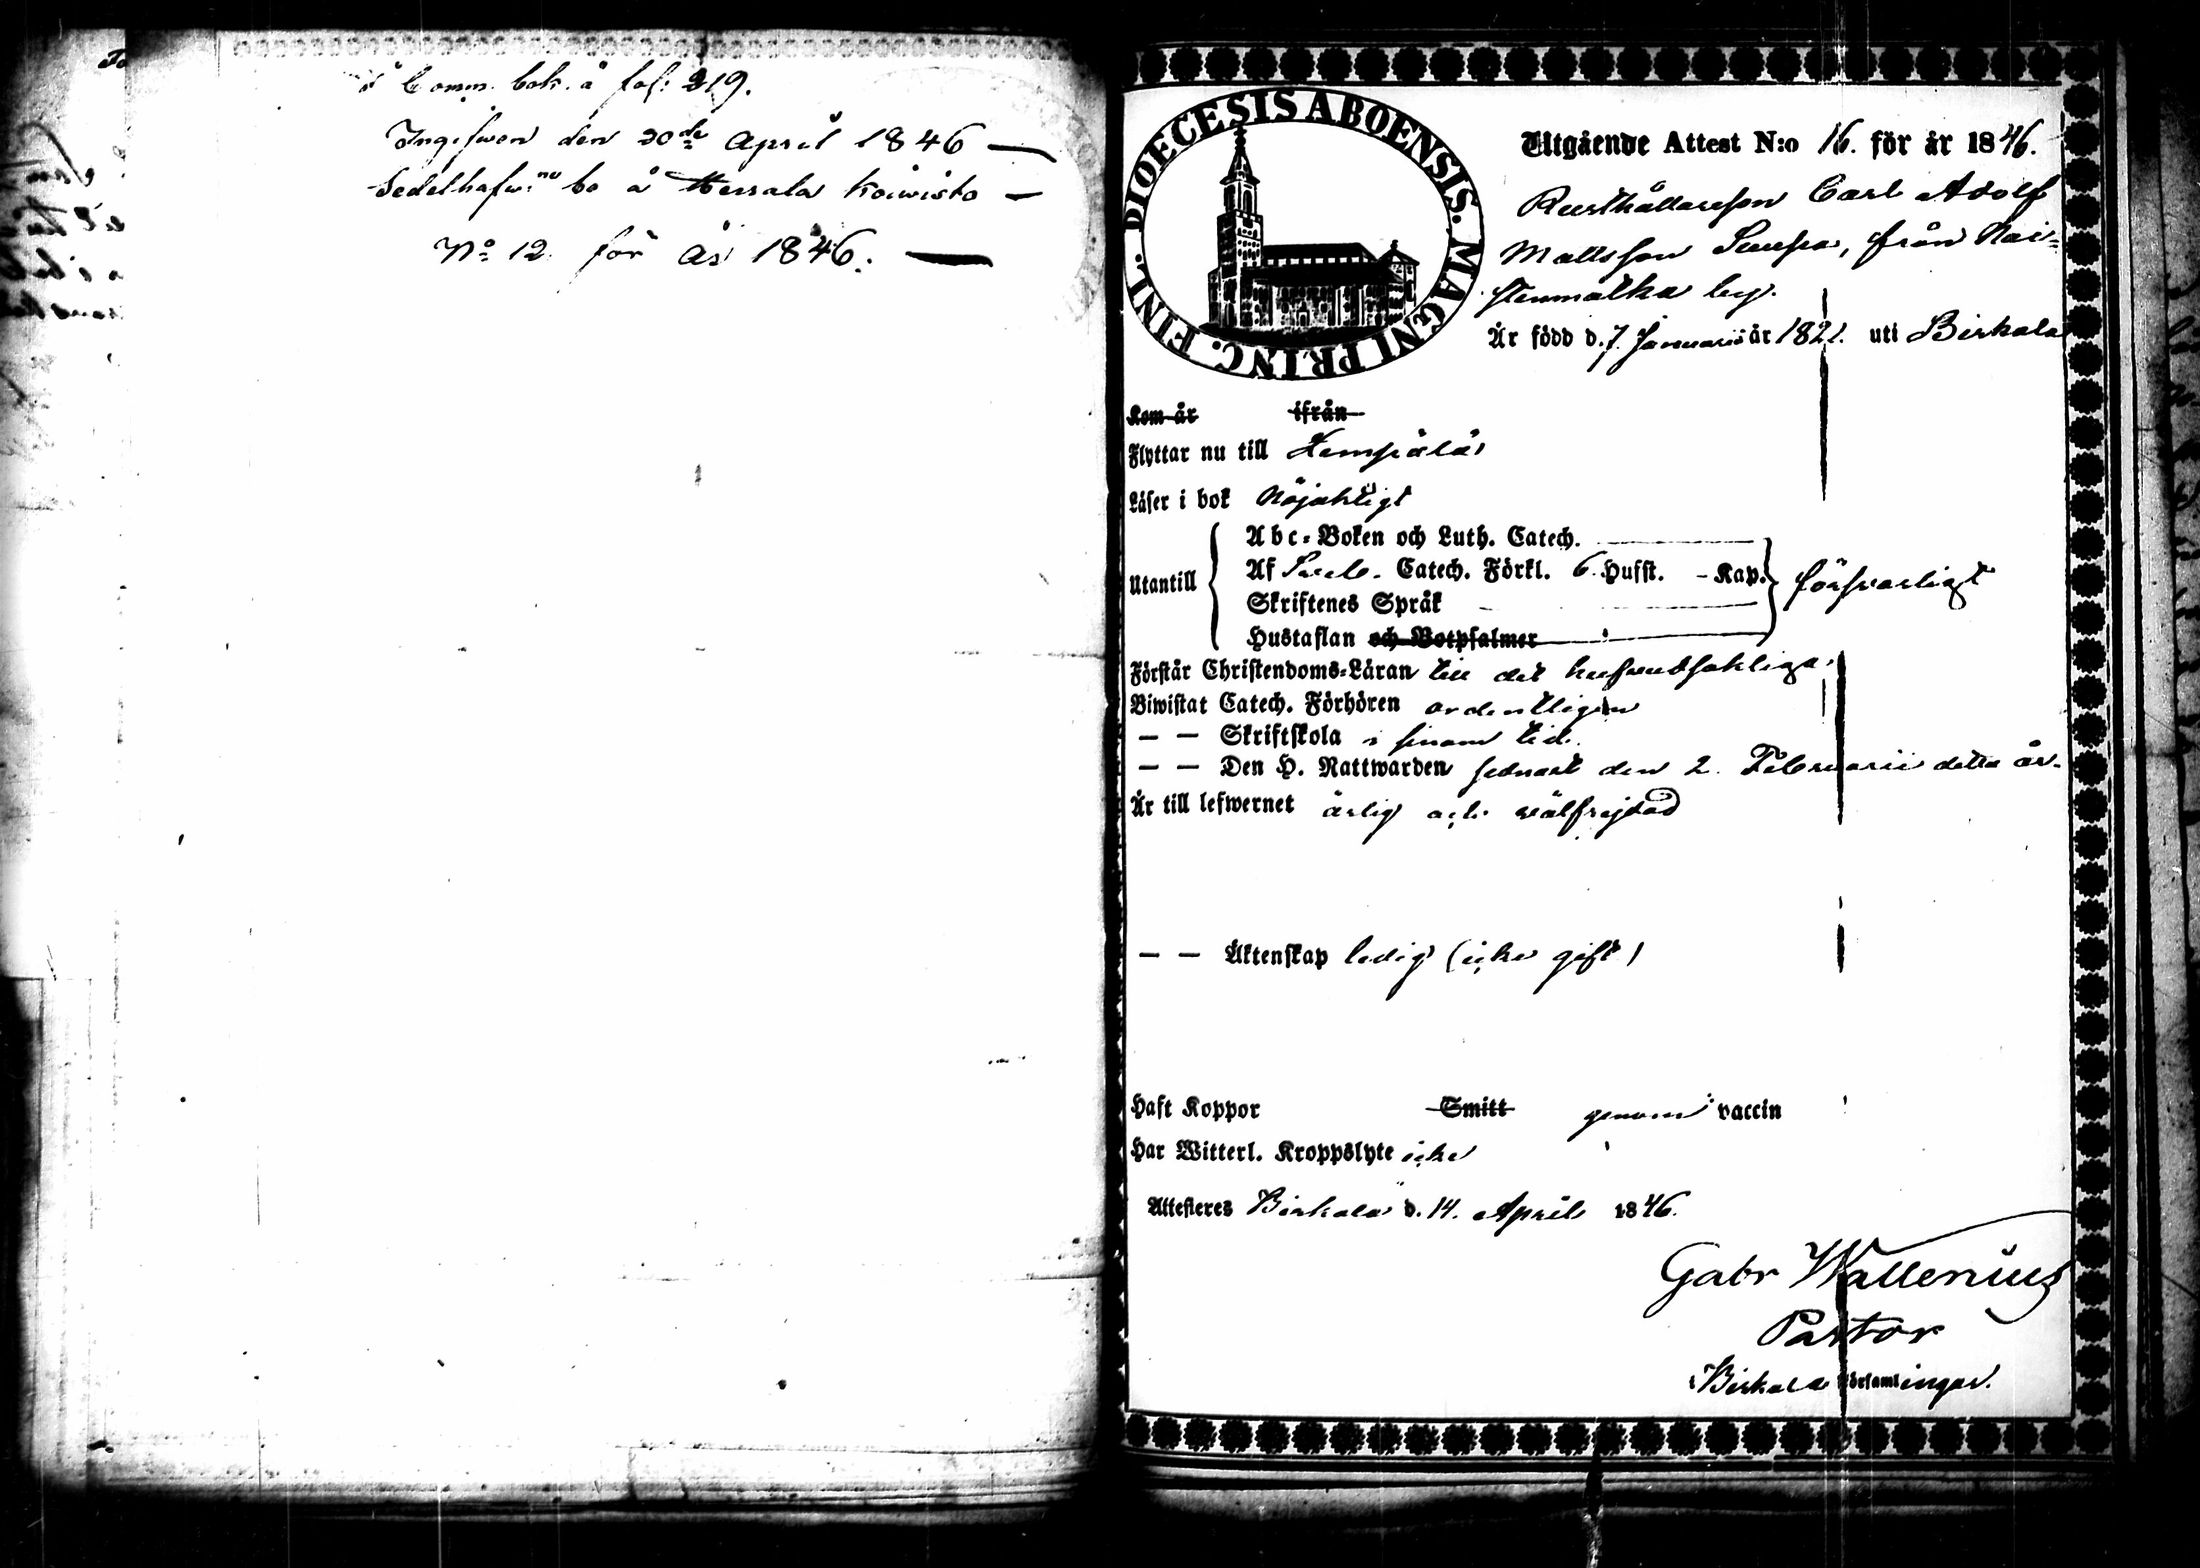 i Comm. bok. å fol: 319.
Ingifwen den 30de April 1846 —
Sedelhafw. bo å Herrala Koivisto —
No 12. för år 1846. —
DIOECESIS ABOENSIS. MAGNI PRINC. FINL.
Utgående Attest N:o 16. för år 1846.
Rusthållareson Carl Adolf
Mattsson Suupa, från Nai-
stenmatka by.
Är född d. 7. Januarii år 1821. uti Birkala
Kom år ifrån
Flyttar nu till Lempälä
Läser i bok Nöjaktigt
Abc-Boken och Luth. Catech.
Utantill Af Sveb. Catech. Förkl. 6. Hufst. - Kap. försvarligt
Skriftenes Språk
Hustaflan och Botpsalmer
Förstår Christendoms-Läran till det hufvudsakliga.
Biwistat Catech. Förhören ordentligen
— — Skriftskola i sinom tid.
— — Den H. Nattwarden sednast den 2. Februarii detta år.
Är till lefwernet ärlig och välfrejdad
— — Äktenskap ledig (icke gift)
Haft Koppor Smitt genom vaccin
Har Witterl. Kroppslyte icke
Attesteres Birkala d. 14. April 1846.
Gabr Wallenius
Pastor
i Birkala Församlingar.